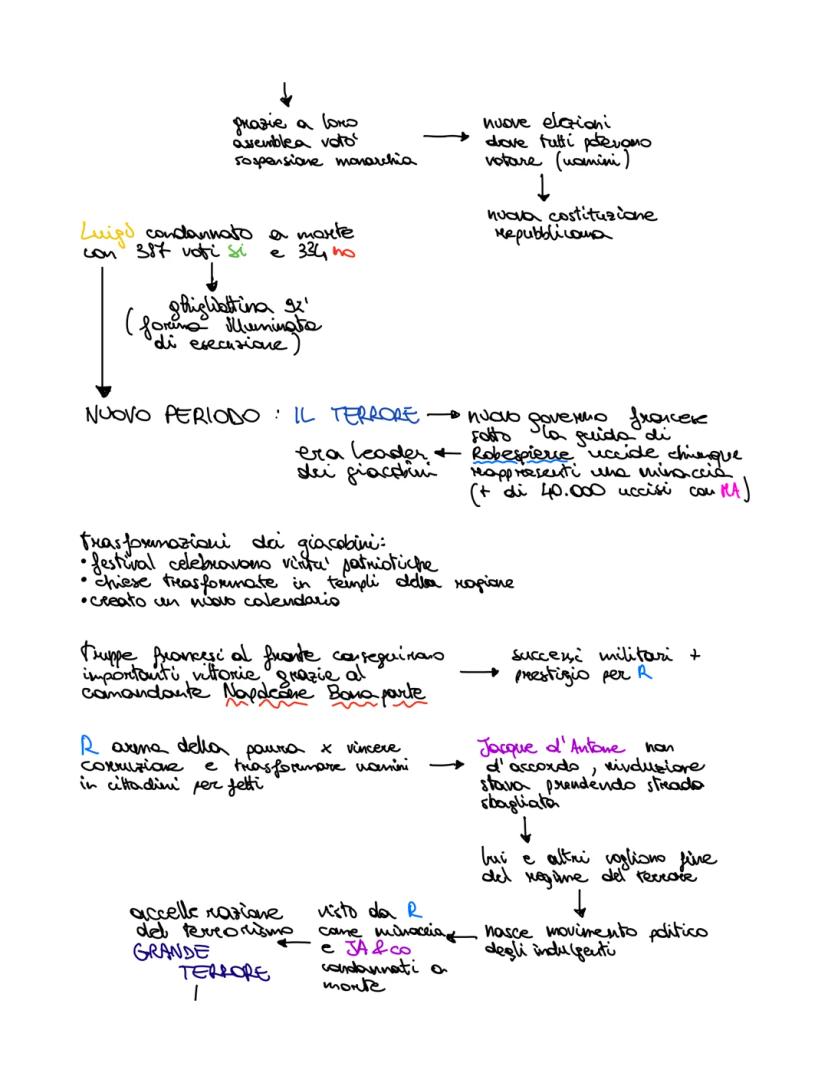 grazie a loro
assemblea votò
sospensione monarchia
nuove elezioni
dove tutti potevano
votare (uomini)
nuova costituzione
repubblicana
Luigi condannato a morte
con 387 voti si e 334 no
ghigliottina
(forma illuminata
di esecuzione)
NUOVO PERIODO : IL TERRORE
nuovo governo francese
sotto la guida di
Robespierre uccide chiunque
rappresenti una minaccia
(+ di 40.000 uccisi con MA)
era leader
dei giacobini
trasformazioni dei giacobini:
• festival celebravano virtù patriotiche
• chiese trasformate in templi della ragione
• creato un nuovo calendario
truppe francesi al fronte conseguirono
importanti vittorie grazie al
comandante Napoleone Bonaparte
successi militari +
prestigio per R
R arma della paura x vincere
corruzione e trasformare uomini
in cittadini perfetti
Jacque d'Antone non
d'accordo, rivoluzione
stava prendendo strada
sbagliata
lui e altri vogliono fine
del regime del terrore
nasce movimento politico
degli indulgenti
visto da R
come minaccia
e JA & co
condannati a
morte
accellerazione
del terrorismo
GRANDE
TERRORE